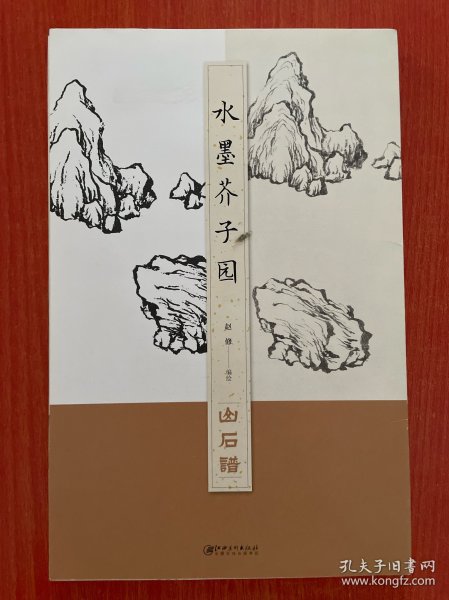 水墨芥子园
赵雅
编绘
山石譜
江西美术出版社
孔夫子旧书网
www.kongfz.com